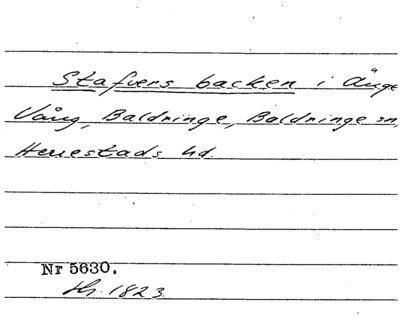 Stafvers backen i Änge
Vång, Baldringe, Baldringe sn,
Herrestads hd.
Nr 5630.
Hy. 1823.